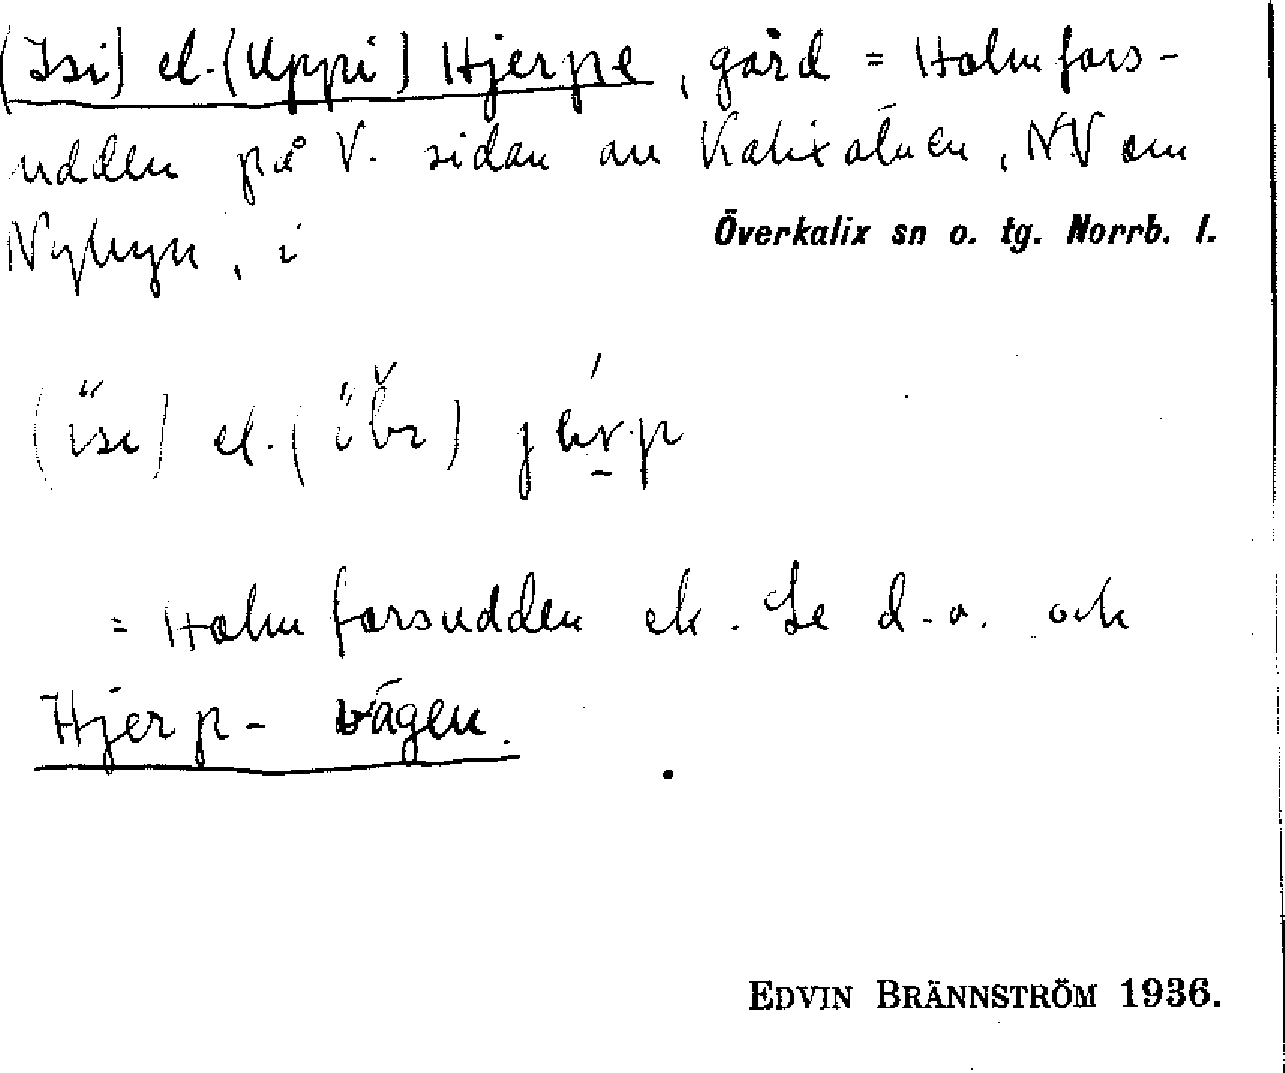 (Isi) el. (Uppi) Hjerpe, gård = Holmfors-
udden på V. sidan av Kalixälven, NV om
Nybyn, i
Överkalix sn o. tg. Norrb. l.
el.
= Holmforsudden ek. Se d.o. och
Hjerp-vägen.
EDVIN BRÄNNSTRÖM 1936.